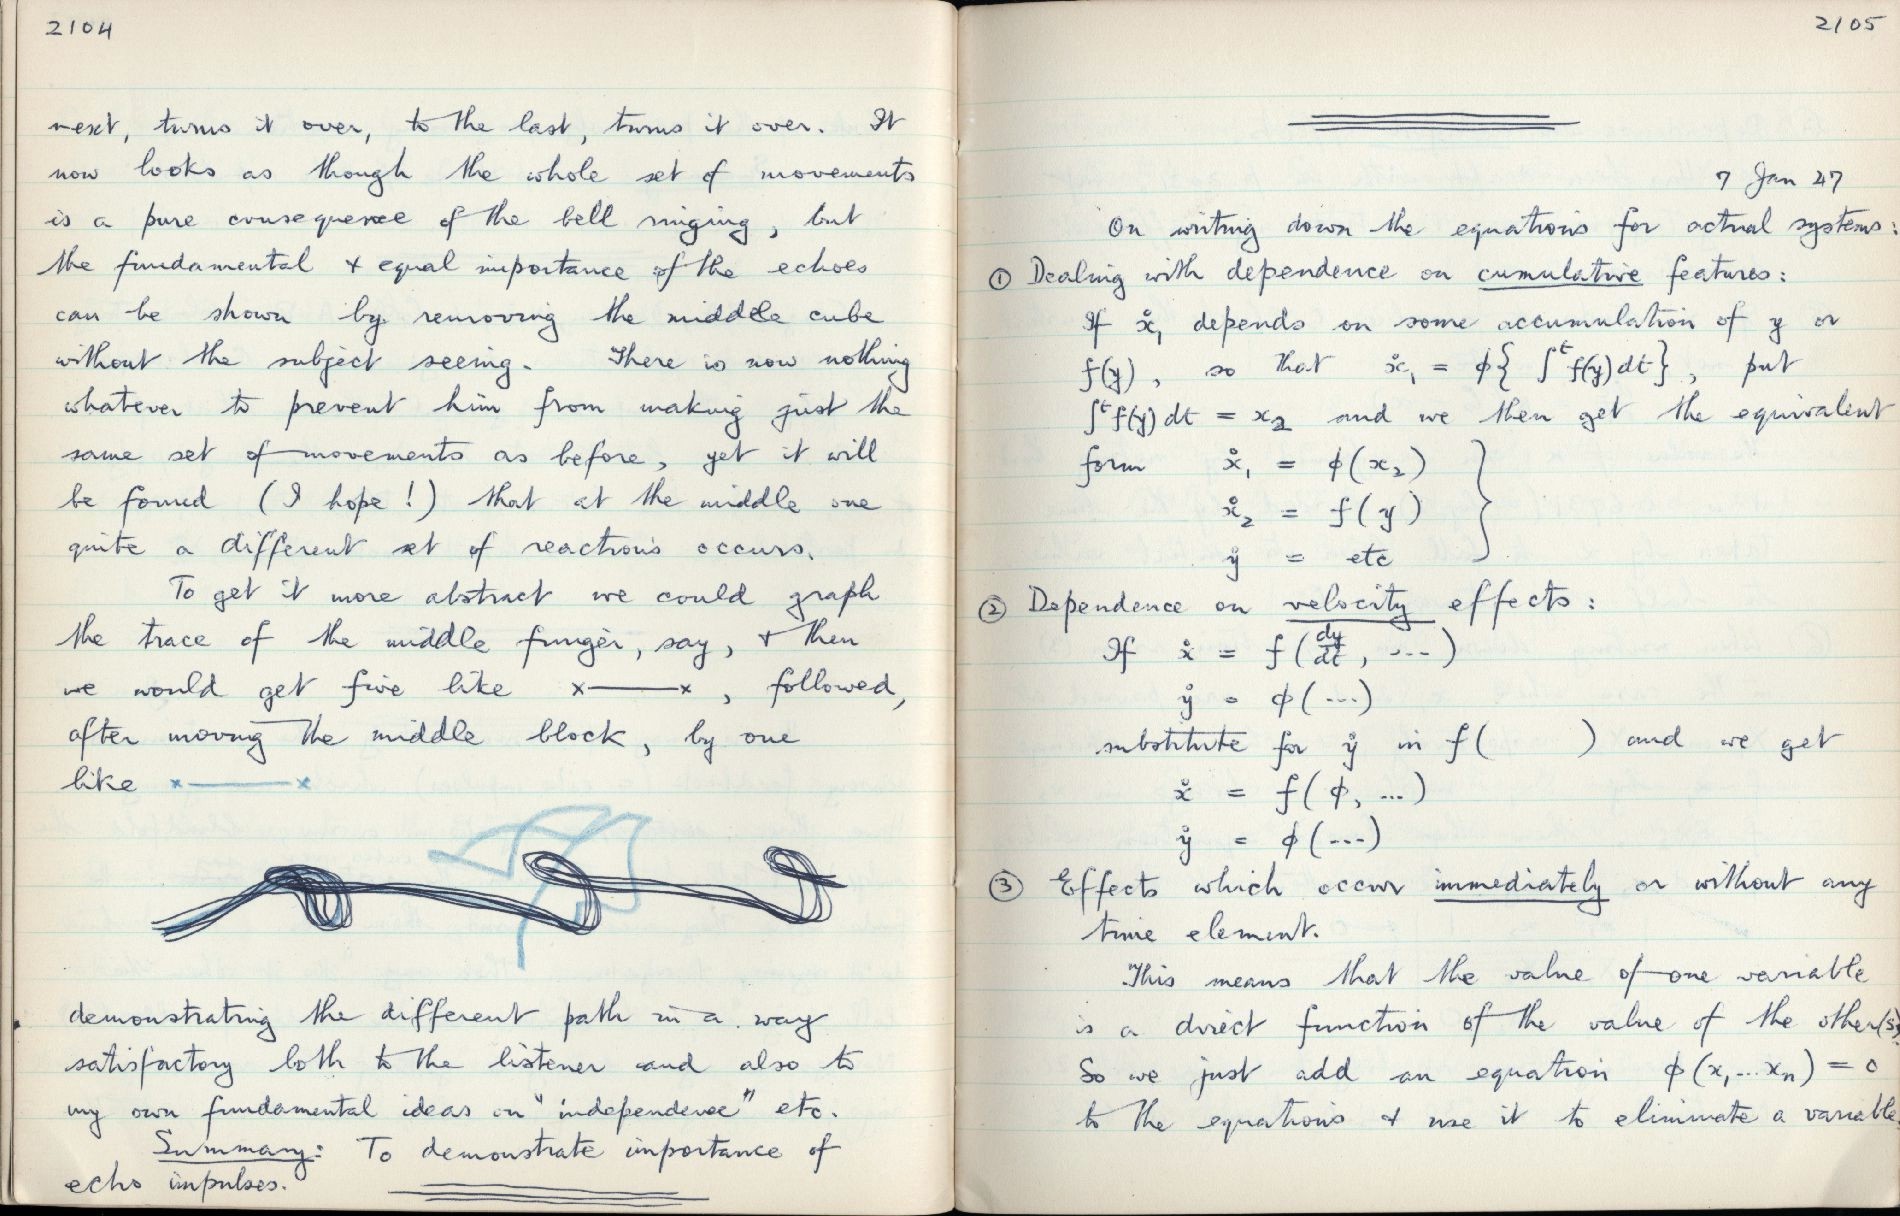 2104
next, turns it over, to the last, turns it over. It
now looks as though the whole set of movements
is a pure consequence of the bell ringing, but
the fundamental & equal importance of the echoes
can be shown by removing the middle cube
without the subject seeing. There is now nothing
whatever to prevent him from making just the
same set of movements as before, yet it will
be found (I hope!) that at the middle one
quite a different set of reactions occurs.
To get it more abstract we could graph
the trace of the middle finger, say, & then
we would get five like x——x, followed,
after moving the middle block, by one
like x——x
demonstrating the different path in a way
satisfactory both to the listener and also to
my own fundamental ideas on "independence" etc.
Summary: To demonstrate importance of
echo impulses.
2105
7 Jan 47
On writing down the equations for actual systems:
① Dealing with dependence on cumulative features:
If ẋ₁ depends on some accumulation of y or
f(y), so that ẋ₁ = ϕ{∫ᵗf(y)dt}, put
∫ᵗf(y)dt = x₂ and we then get the equivalent
form ẋ₁ = ϕ(x₂)
ẋ₂ = f(y)
ẏ = etc
② Dependence on velocity effects:
If ẋ = f(dy/dt, ...)
ẏ = ϕ(...)
substitute for ẏ in f( ) and we get
ẋ = f(ϕ, ...)
ẏ = ϕ(...)
③ Effects which occur immediately or without any
time element.
This means that the value of one variable
is a direct function of the value of the other(s).
So we just add an equation ϕ(x₁...xₙ) = 0
to the equations & use it to eliminate a variable.